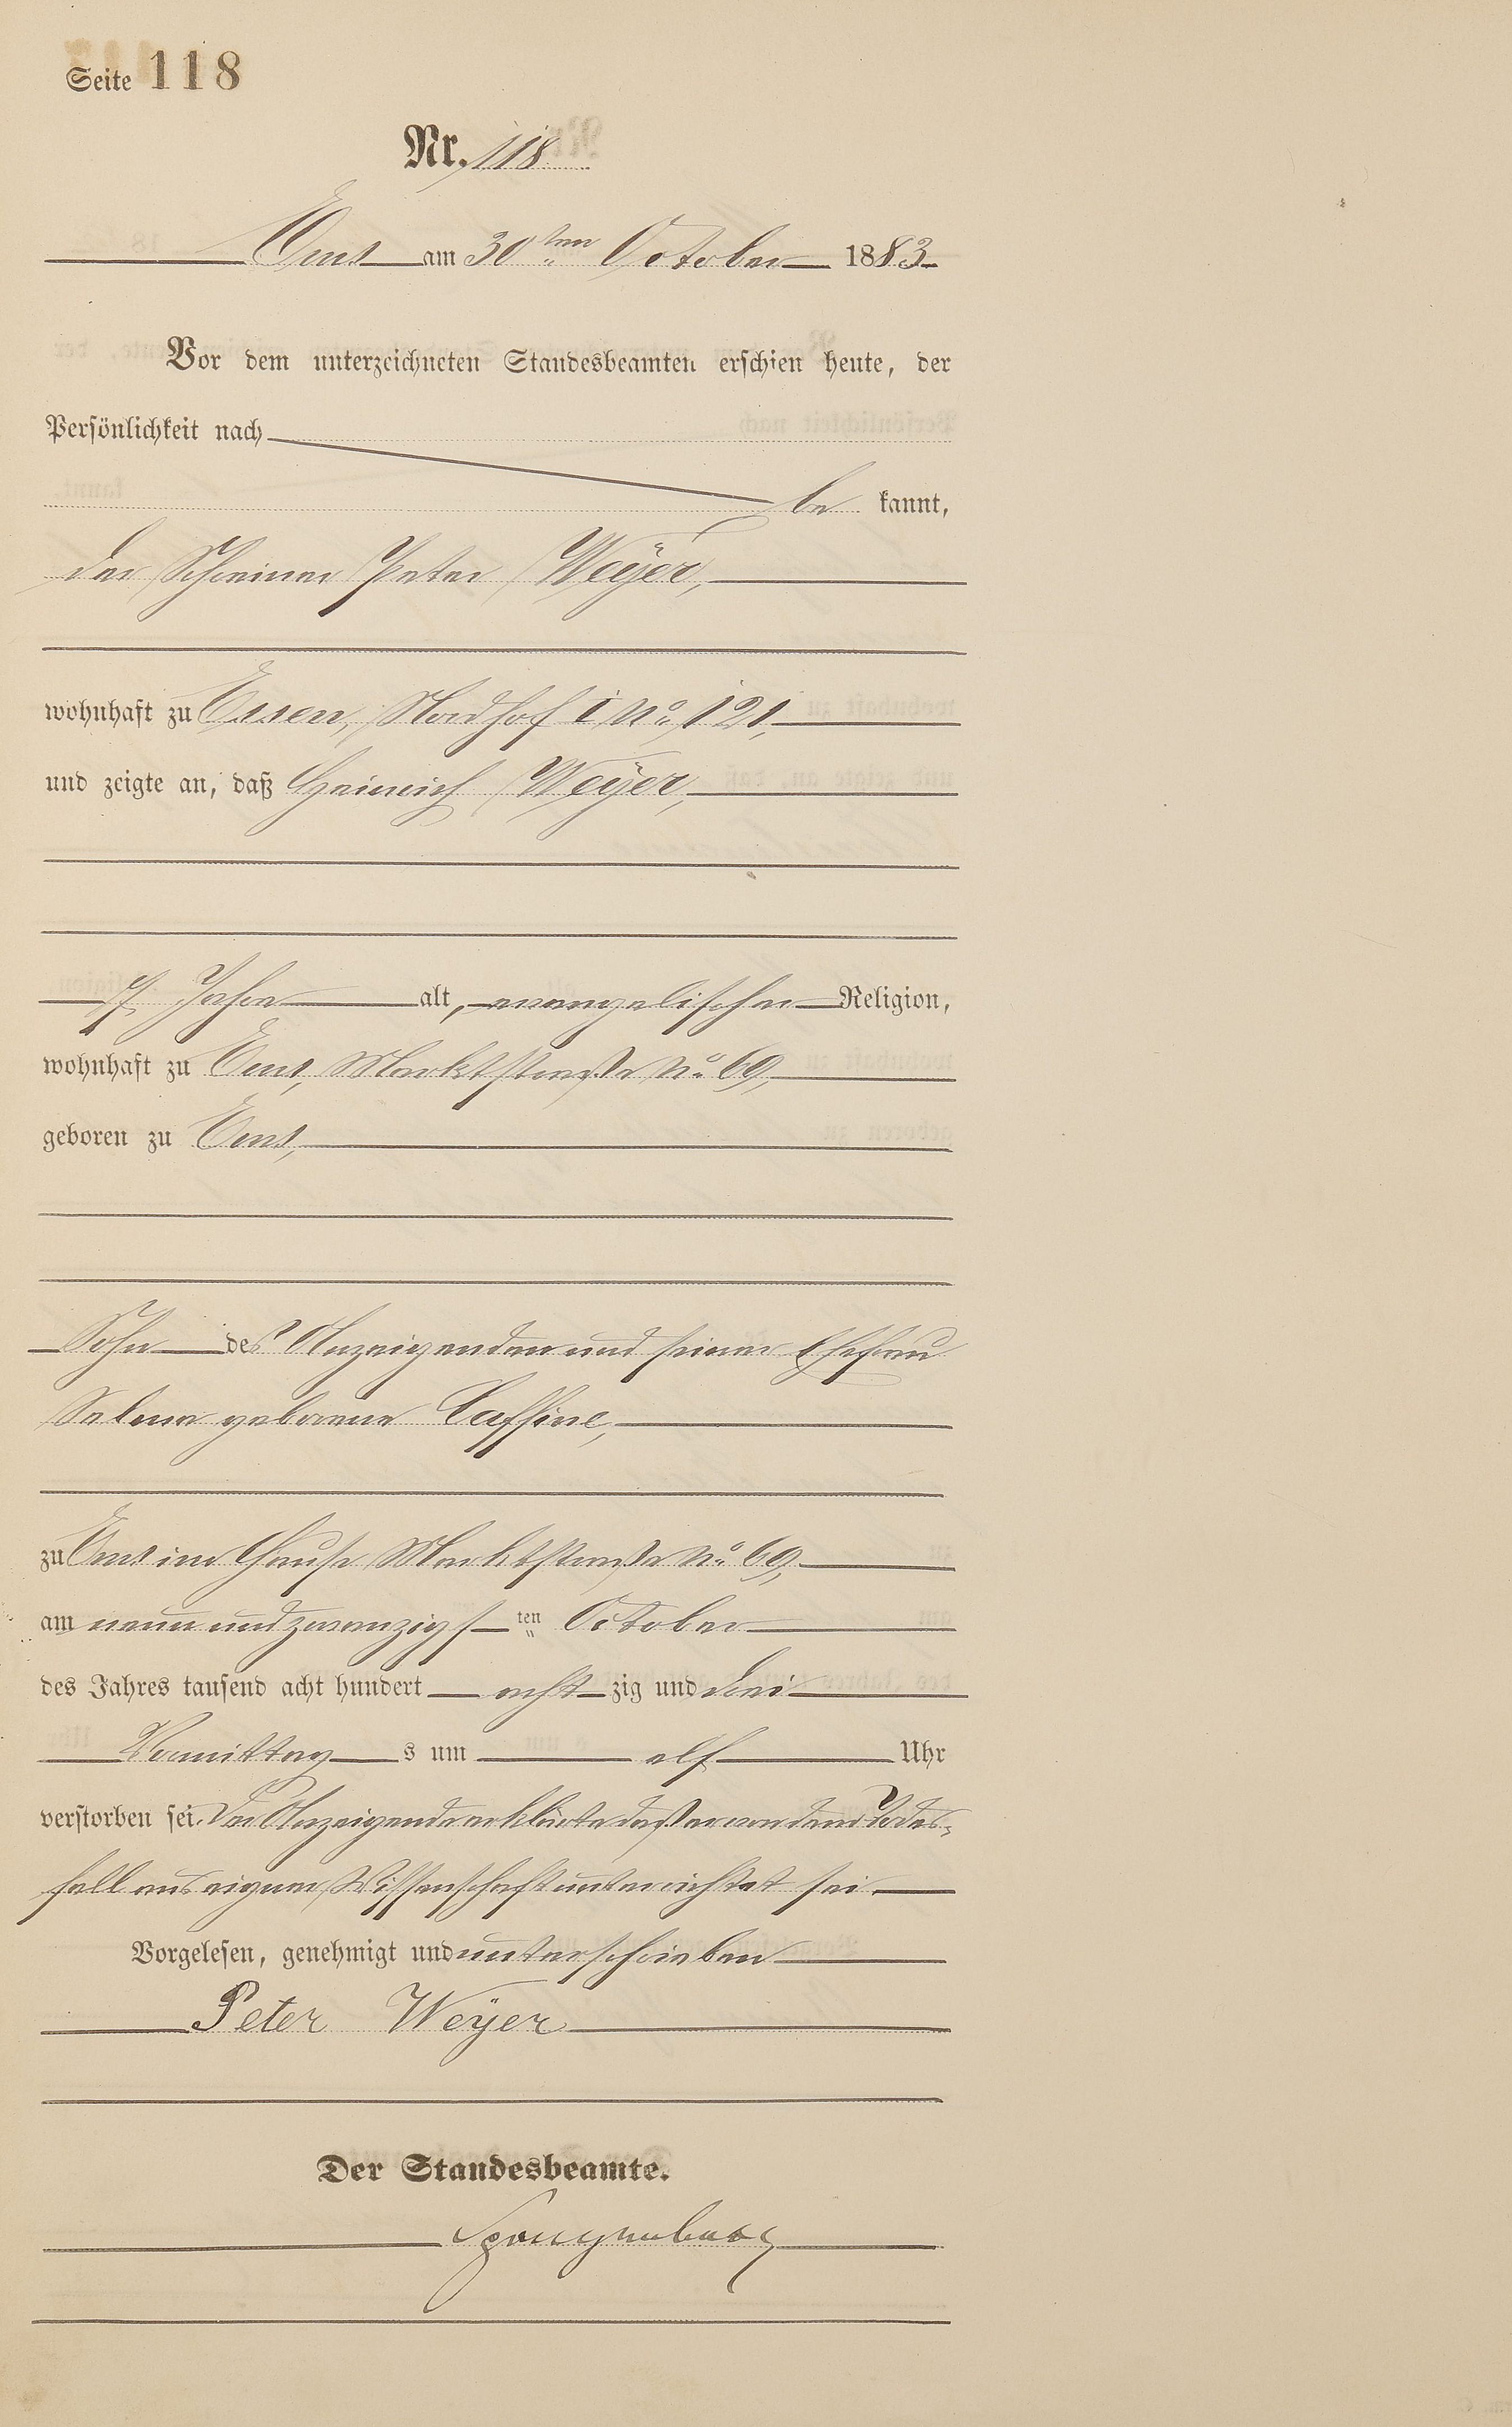 Seite 118
Nr. 118
Ems am 30ten October 1883
Vor dem unterzeichneten Standesbeamten erschien heute, der
Persönlichkeit nach
be kannt,
der Schreiner Peter Weÿer,
wohnhaft zu Essen, Nordhof I No. 121,
und zeigte an, daß Heinrich Weÿer,
7 Jahre alt, evangelischer Religion,
wohnhaft zu Ems, Marktstraße No. 69,
geboren zu Ems,
Sohn des Anzeigenden und seiner Ehefrau
geborene
zu Ems im Hause Marktstraße No. 69,
am neun und zwanzigsten October
des Jahres tausend acht hundert acht zig und drei
Vormittag s um elf Uhr
verstorben sei. Der Anzeigende erklärte daß er von dem Todes-
fall aus eigener Wissenschaft unterrichtet sei.
Vorgelesen, genehmigt und unterschrieben
Peter Weÿer
Der Standesbeamte.
Spangenberg